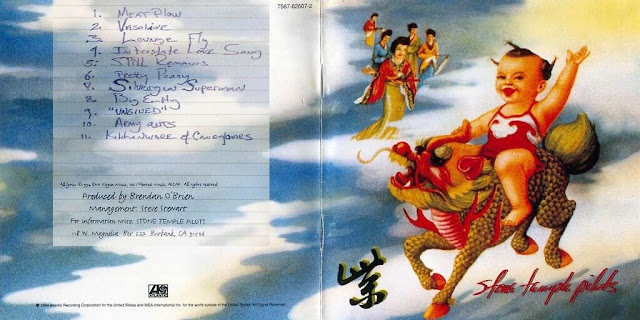 7567-82607-2
1. MEAT PLOW
2. VASOLINE
3. LOUNGE FLY
4. Interstate Love Song
5. STILL Remains
6. Pretty Penny
7. Silvergun Superman
8. Big Empty
9. "UNGLUED"
10. ARMY ANTS
11. KITCHENWARE & CANDYBARS
Produced by Brendan O'Brien
Management: Steve Stewart
For information write: STONE TEMPLE PILOTS
118 N. Magnolia Box 227 Burbank, CA
ATLANTIC
© 1994 Atlantic Recording Corporation for the United States and WEA International Inc. for the world outside of the United States. All Rights Reserved.
紫
stone temple pilots